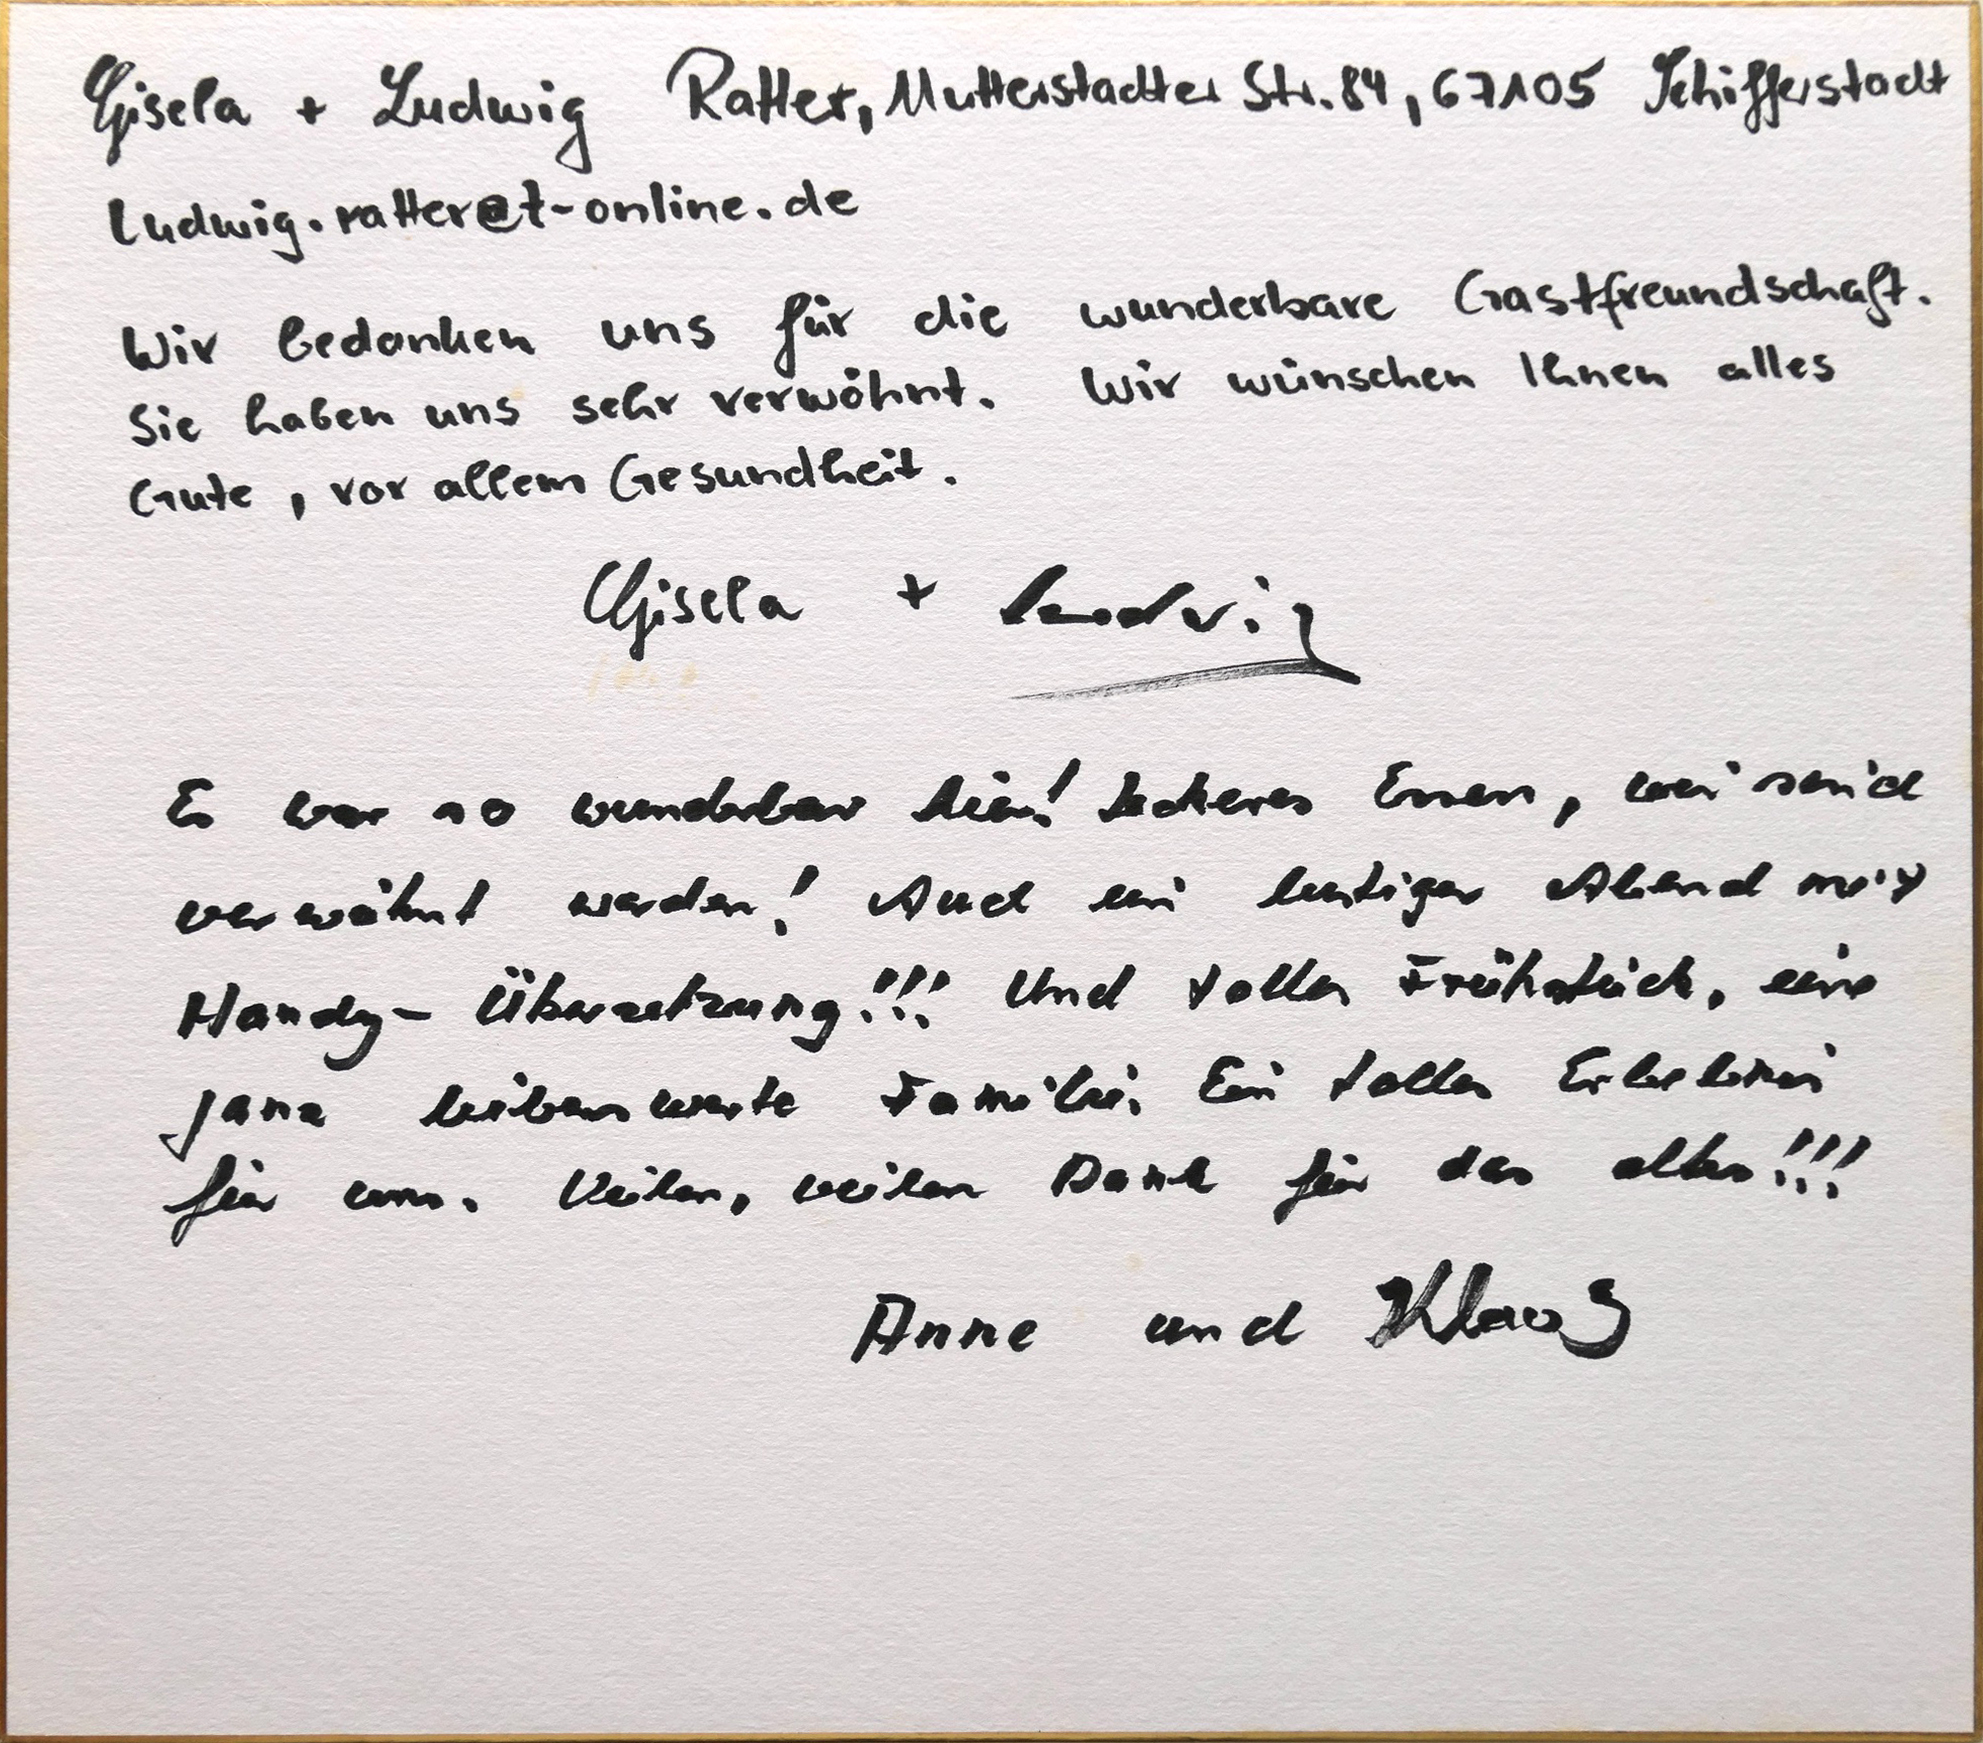 Gisela + Ludwig Ratter, Mutterstadter Str. 84, 67105 Schifferstadt
Ludwig.ratter@t-online.de
Wir bedanken uns für die wunderbare Gastfreundschaft.
Sie haben uns sehr verwöhnt. Wir wünschen Ihnen alles
Gute, vor allem Gesundheit.
Gisela + Ludwig
Es war so wunderbar hier! Leckeres Essen, wir sind
verwöhnt worden! Auch ein lustiger Abend mit
Handy-Übersetzung!!! Und tolles Frühstück, eine
ganz liebenswerte Familie. Ein tolles Erlebnis
für uns. Vielen, vielen Dank für das alles!!!
Anne und Klaus